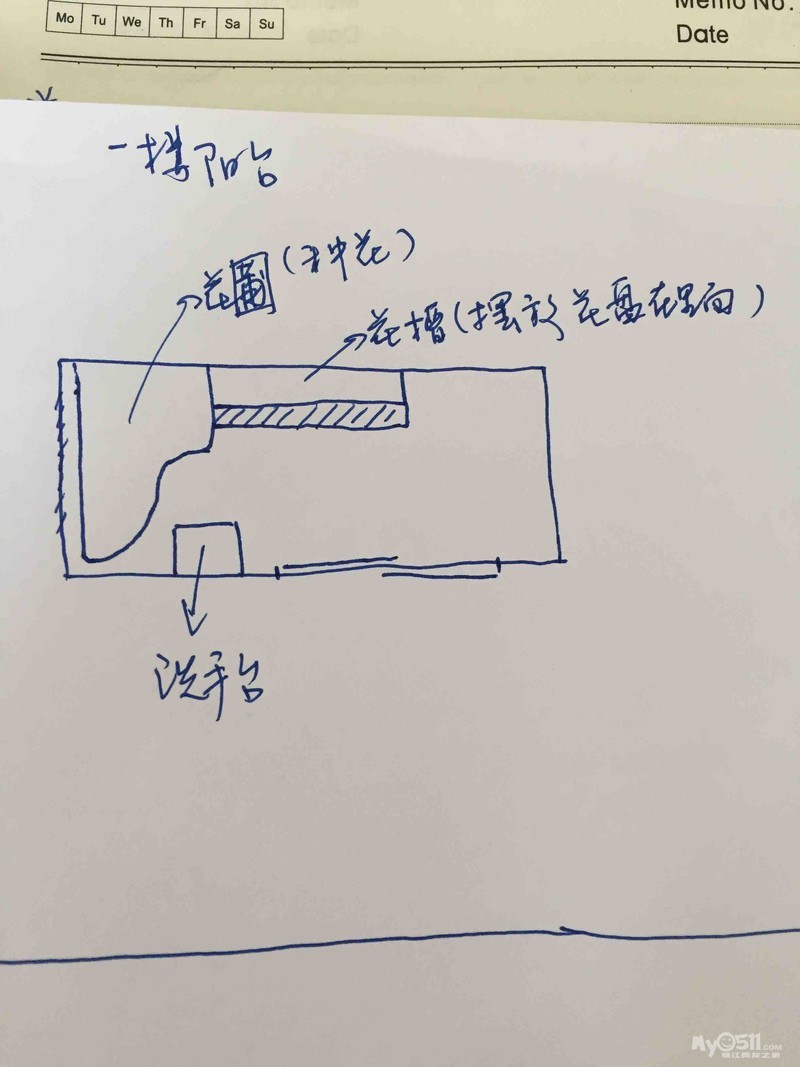 Mo Tu We Th Fr Sa Su
Memo No.
Date
一楼阳台
花圃(种花)
花槽(摆放花盘在里面)
洗手台
My0511.COM
镇江网友之家